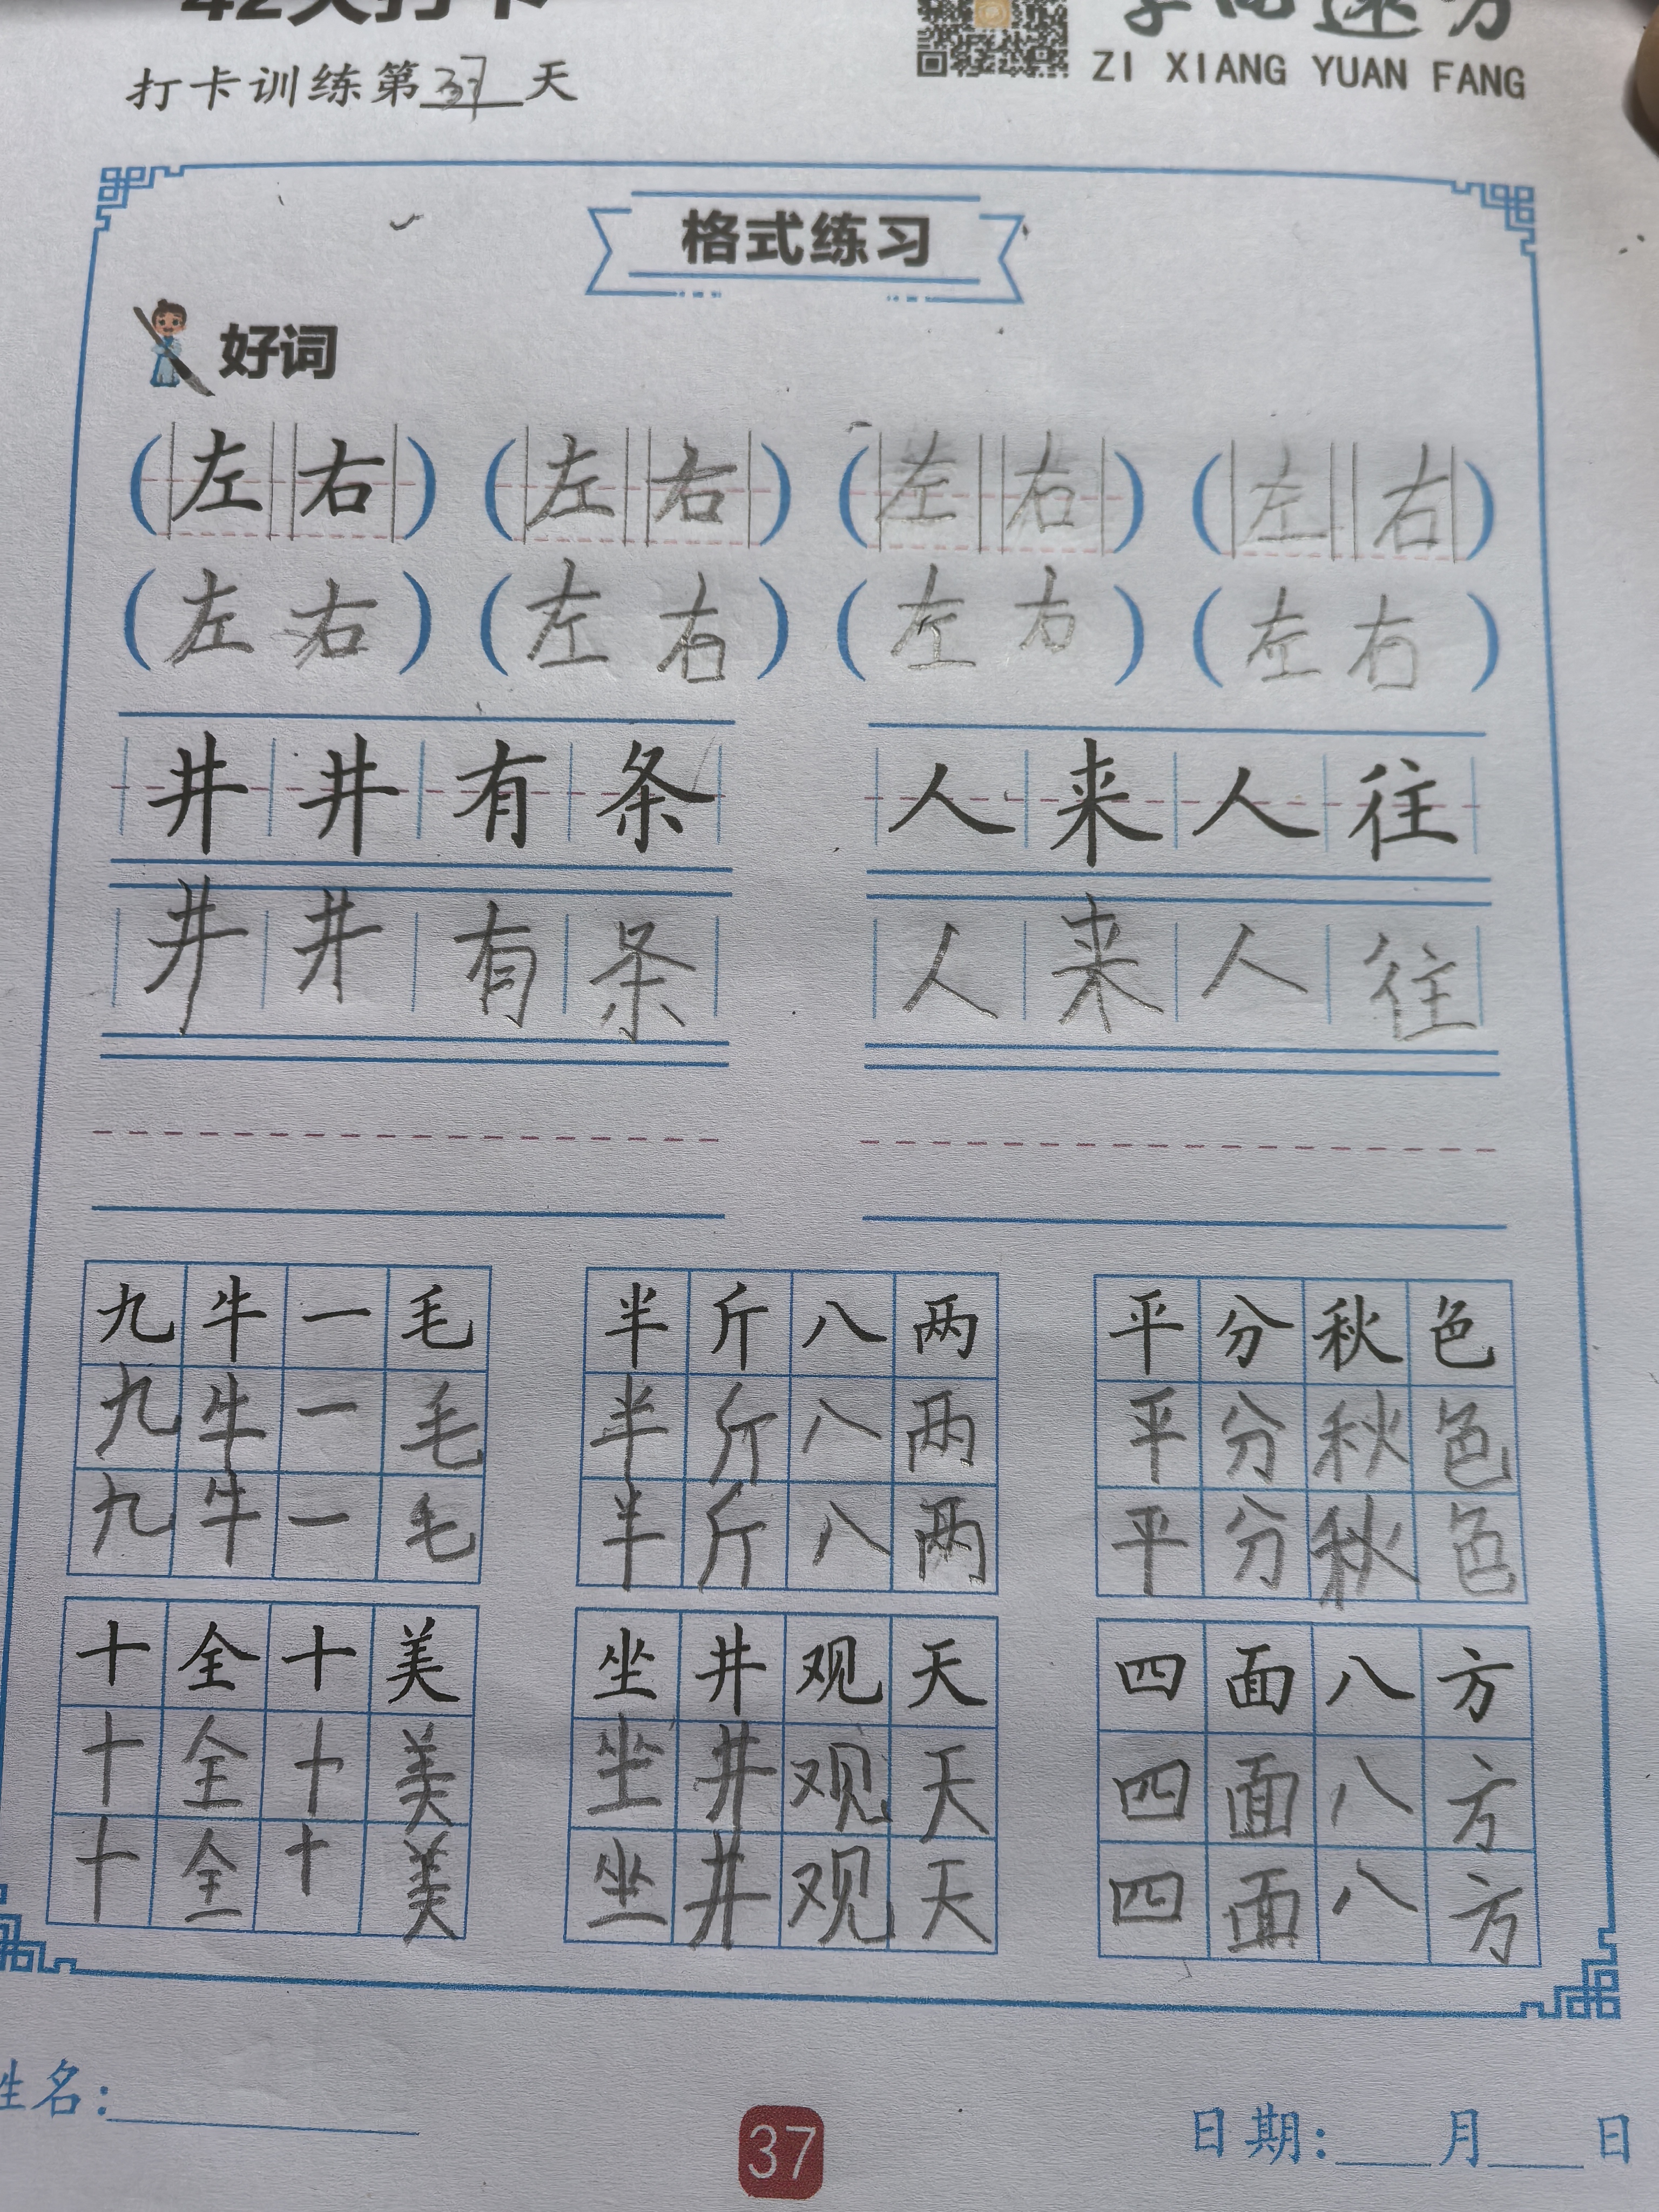 42天打卡
打卡训练第37天
字向远方
ZI XIANG YUAN FANG
格式练习
好词
(左右) (左右) (左右) (左右)
(左右) (左右) (左右) (左右)
井井有条 人来人往
井井有条 人来人往
九牛一毛 半斤八两 平分秋色
九牛一毛 半斤八两 平分秋色
九牛一毛 半斤八两 平分秋色
十全十美 坐井观天 四面八方
十全十美 坐井观天 四面八方
十全十美 坐井观天 四面八方
姓名:
37
日期: 月 日